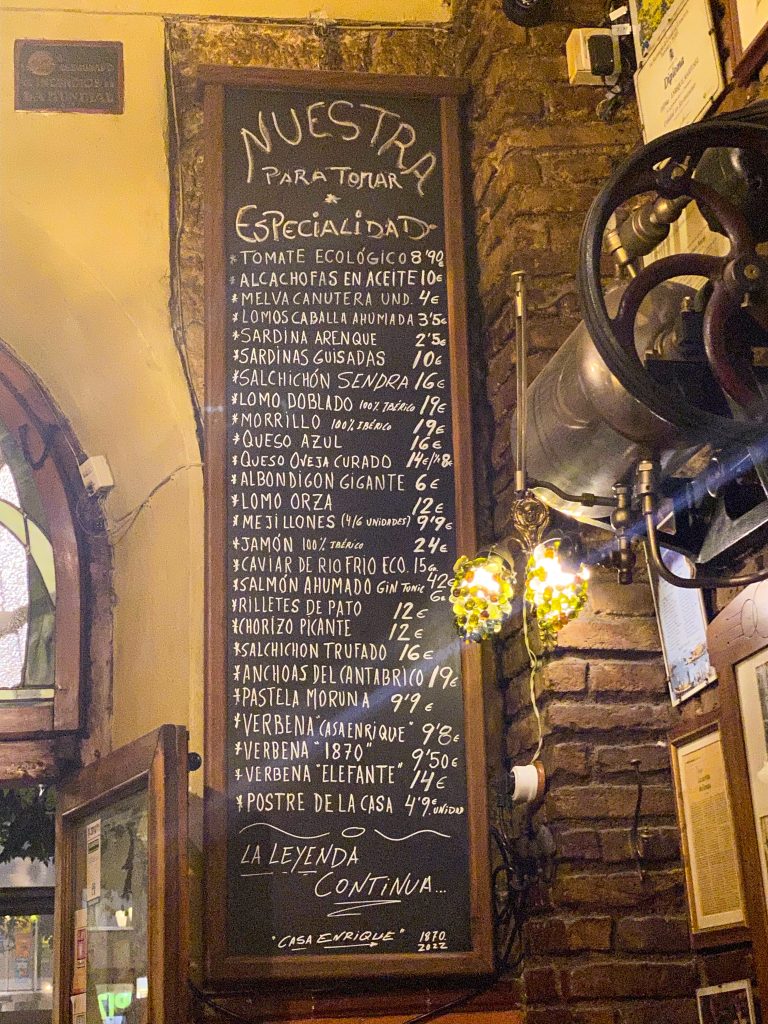 Diploma
NUESTRA
PARA TOMAR
*
ESPECIALIDAD
* TOMATE ECOLÓGICO 8'90
* ALCACHOFAS EN ACEITE 10€
* MELVA CANUTERA UND. 4€
* LOMOS CABALLA AHUMADA 3'5€
* SARDINA ARENQUE 2'5€
* SARDINAS GUISADAS 10€
* SALCHICHÓN SENDRA 16€
* LOMO DOBLADO 100% IBÉRICO 19€
* MORRILLO 100% IBÉRICO 19€
* QUESO AZUL 16€
* QUESO OVEJA CURADO 14€/½8€
* ALBONDIGON GIGANTE 6€
* LOMO ORZA 12€
* MEJILLONES (4/6 UNIDADES) 9'9€
* JAMÓN 100% IBÉRICO 24€
* CAVIAR DE RIO FRIO ECO. 15G. 42€
* SALMÓN AHUMADO GIN TONIC 6€
* RILLETES DE PATO 12€
* CHORIZO PICANTE 12€
* SALCHICHON TRUFADO 16€
* ANCHOAS DEL CANTABRICO 19€
* PASTELA MORUNA 9'9€
* VERBENA "CASA ENRIQUE" 9'8€
* VERBENA "1870" 9'50€
* VERBENA "ELEFANTE" 14€
* POSTRE DE LA CASA 4'9€ UNIDAD
LA LEYENDA
CONTINUA...
"CASA ENRIQUE" 1870
2022